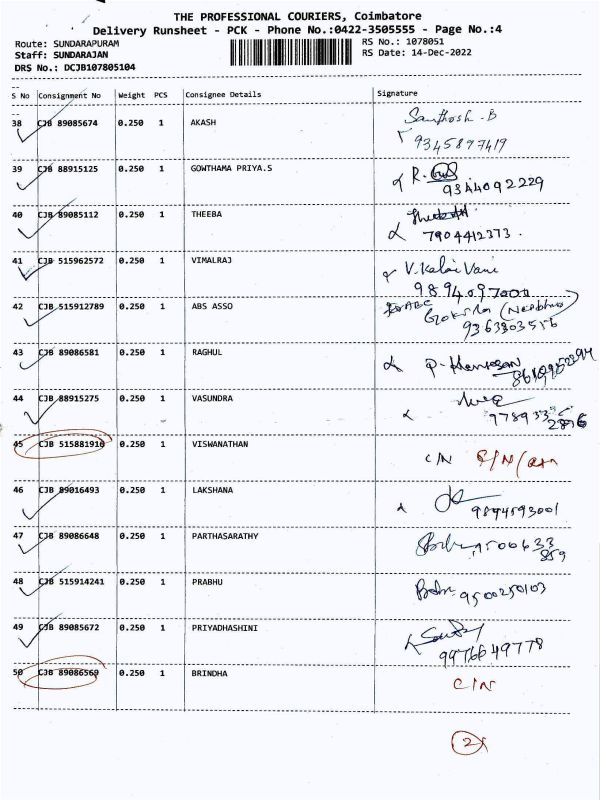 THE PROFESSIONAL COURIERS, Coimbatore
Delivery Runsheet - PCK - Phone No.:0422-3505555 - Page No.:4
Route: SUNDARAPURAM
RS No.: 1078051
Staff: SUNDARAJAN
RS Date: 14-Dec-2022
DRS No.: DCJB107805104
S No Consignment No Weight PCS Consignee Details Signature
38 CJB 89085674 0.250 1 AKASH Santhosh - B
9345897419
39 CJB 88915125 0.250 1 GOWTHAMA PRIYA.S R.
9344092229
40 CJB 89085112 0.250 1 THEEBA
7904412373.
41 CJB 515962572 0.250 1 VIMALRAJ V. Kalai Vani
9894097000
42 CJB 515912789 0.250 1 ABS ASSO
9363303516
43 CJB 89086581 0.250 1 RAGHUL
44 CJB 88915275 0.250 1 VASUNDRA
45 CJB 515881910 0.250 1 VISWANATHAN C/N
46 CJB 89016493 0.250 1 LAKSHANA
9894593001
47 CJB 89086648 0.250 1 PARTHASARATHY 9500633
859
48 CJB 515914241 0.250 1 PRABHU 9500250103
49 CJB 89085672 0.250 1 PRIYADHASHINI
9976649778
50 CJB 89086569 0.250 1 BRINDHA C/N
2